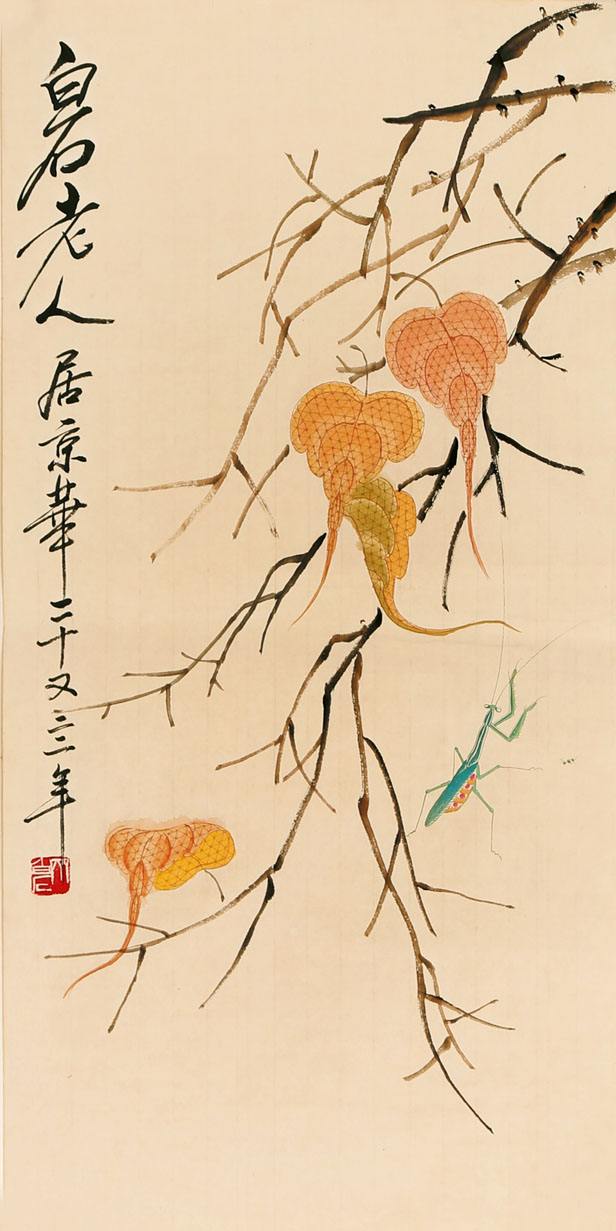 白石老人居京華二十又三年